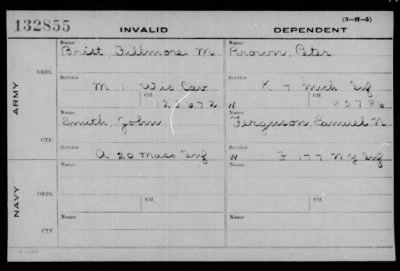 132855 INVALID DEPENDENT (3-H-5)
Name Name
Brist Fillmore M Brown, Peter
ORIG. Service Service
M 1 Wis Cav K 7 Mich Inf
ARMY Ctf. Ctf.
125672 W 85786
Name Name
Smith, John Ferguson, Samuel N
CTF. Service Service
A 20 Mass Inf W F 177 N.Y. Inf
Name Name
ORIG. Ctf. Ctf.
Service Service
NAVY
Name Name
CTF.